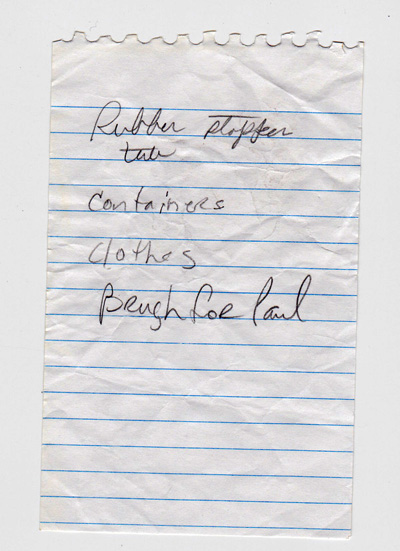 Rubber stopper
Containers
Clothes
Brush for Paul